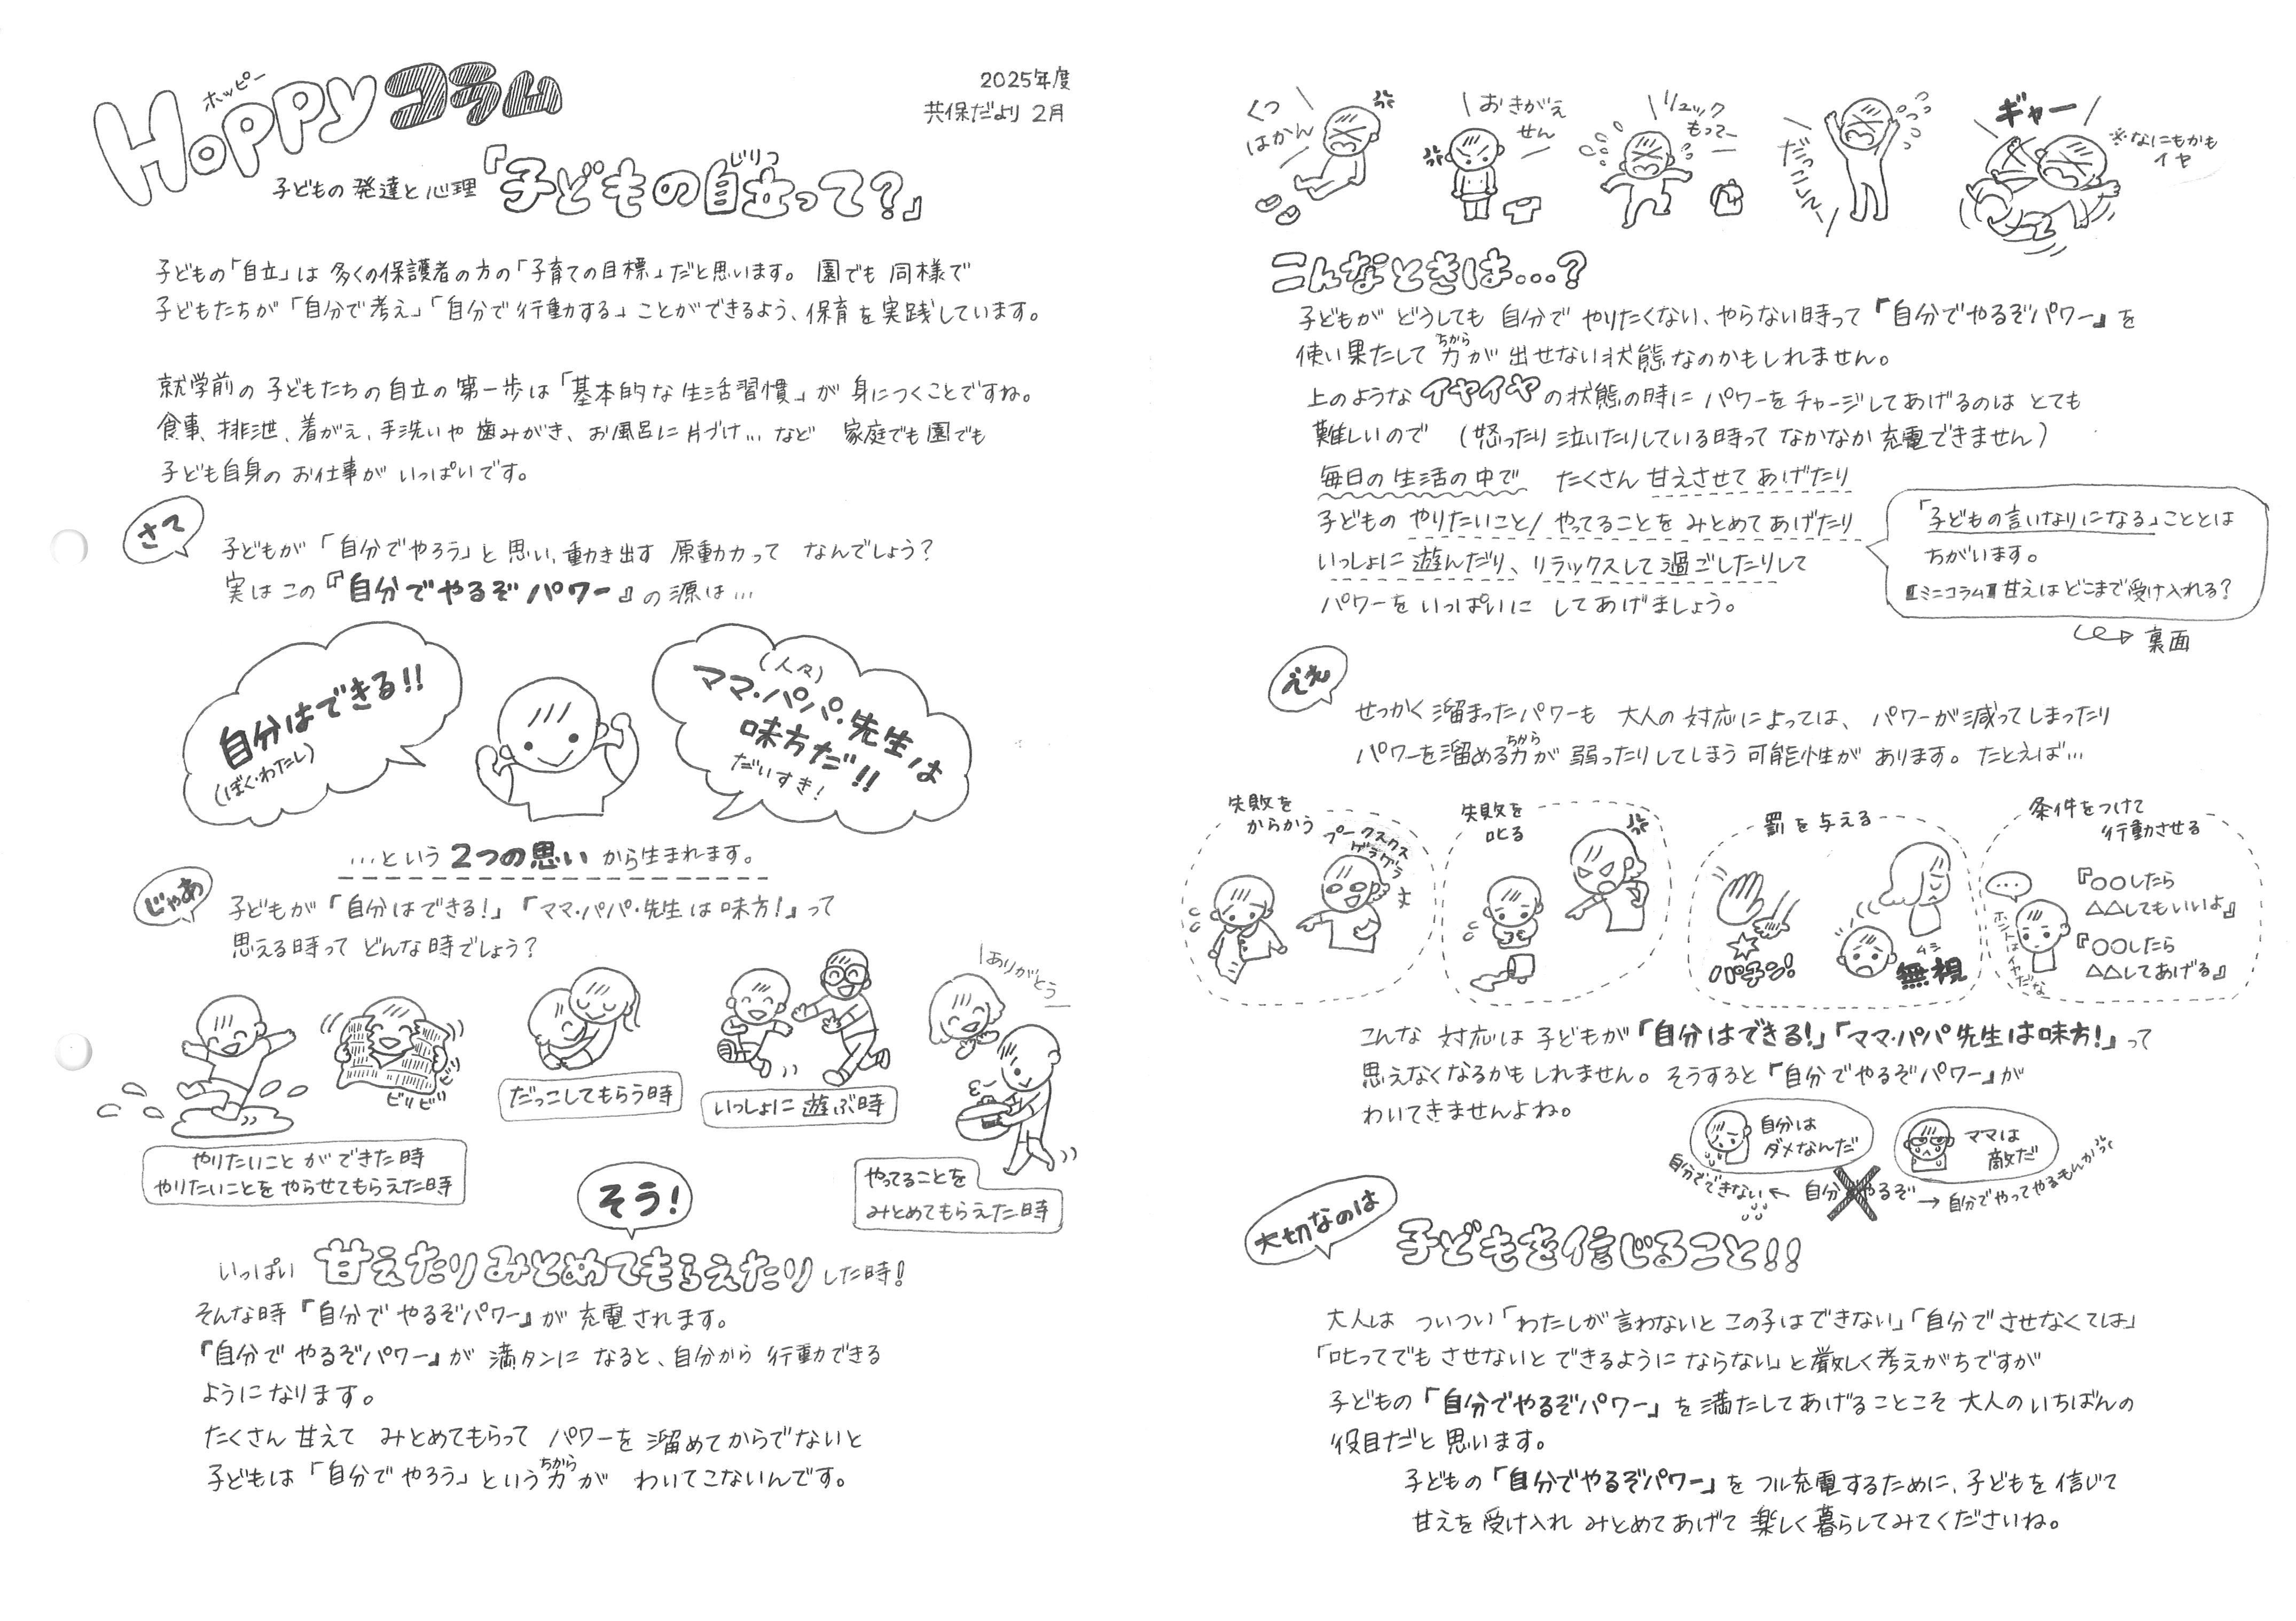 ホッピー
Hoppyコラム
2025年度
共保だより 2月
子どもの発達と心理『子どもの自立って?』
じりつ
子どもの「自立」は 多くの保護者の方の「子育ての目標」だと思います。 園でも 同様で
子どもたちが「自分で考え」「自分で行動する」ことができるよう、保育を実践しています。
就学前の子どもたちの自立の第一歩は「基本的な生活習慣」が 身につくことですね。
食事、排泄、着がえ、手洗いや 歯みがき、お風呂に片づけ… など 家庭でも園でも
子ども自身の お仕事が いっぱいです。
さて
子どもが 「自分でやろう」と思い、動き出す 原動力って なんでしょう?
実はこの『自分でやるぞパワー』の源は…
自分はできる!!
(ぼく・わたし)
(人々)
ママ・パパ・先生は
味方だ!!
だいすき!
…という 2つの思い から生まれます。
じゃあ
子どもが「自分はできる!」「ママ・パパ・先生は味方!」って
思える時って どんな時でしょう?
ビリビリ
ありがとう
やりたいことができた時
やりたいことを やらせてもらえた時
だっこしてもらう時
いっしょに 遊ぶ時
やってることを
みとめてもらえた時
そう!
いっぱい 甘えたりみとめてもらえたり した時!
そんな時『自分で やるぞパワー』が 充電されます。
『自分で やるぞパワー』が 満タンに なると、自分から 行動できる
ようになります。
たくさん 甘えて みとめてもらって パワーを 溜めてからでないと
ちから
子どもは「自分でやろう」という力が わいてこないんです。
くつ
はかん
おきがえ
せん
リュック
もってー
だっこしてー
ギャー
※なにもかも
イヤ
こんなときは…?
子どもが どうしても 自分で やりたくない、やらない時って『自分でやるぞパワー』を
ちから
使い果たして 力が 出せない状態なのかもしれません。
上のような イヤイヤ の状態の時に パワーをチャージしてあげるのは とても
難しいので (怒ったり 泣いたりしている時って なかなか 充電できません)
毎日の 生活の中で たくさん 甘えさせて あげたり
子どもの やりたいこと/やってることを みとめてあげたり
いっしょに 遊んだり、リラックスして過ごしたりして
パワーを いっぱいに してあげましょう。
「子どもの言いなりになる」こととは
ちがいます。
【ミニコラム】甘えはどこまで受け入れる?
裏面
ええ
せっかく 溜まったパワーも 大人の 対応によっては、 パワーが減ってしまったり
ちから
パワーを溜める力が 弱ったりしてしまう 可能性が あります。 たとえば…
失敗を
からかう
プークスクス
ゲラゲラ
失敗を
叱る
罰を与える
パチン!
ムシ
無視
条件をつけて
行動させる
…
ホントはイヤだな
『〇〇したら
△△してもいいよ』
『〇〇したら
△△してあげる』
こんな 対応は 子どもが「自分はできる!」「ママ・パパ 先生は味方!」って
思えなくなるかもしれません。 そうすると「自分でやるぞパワー」が
わいてきませんよね。
自分は
ダメなんだ
ママは
敵だ
自分でできない ← 自分でやるぞ → 自分でやってやるもんかっ
大切なのは
子どもを信じること!!
大人は ついつい「わたしが言わないと この子はできない」「自分で させなくては」
「叱ってでも させないと できるように ならない」と厳しく 考えがちですが
子どもの「自分でやるぞパワー」を 満たしてあげることこそ 大人の いちばんの
役目だと 思います。
子どもの「自分でやるぞパワー」を フル充電するために、子どもを 信じて
甘えを 受け入れ みとめてあげて 楽しく暮らしてみてくださいね。